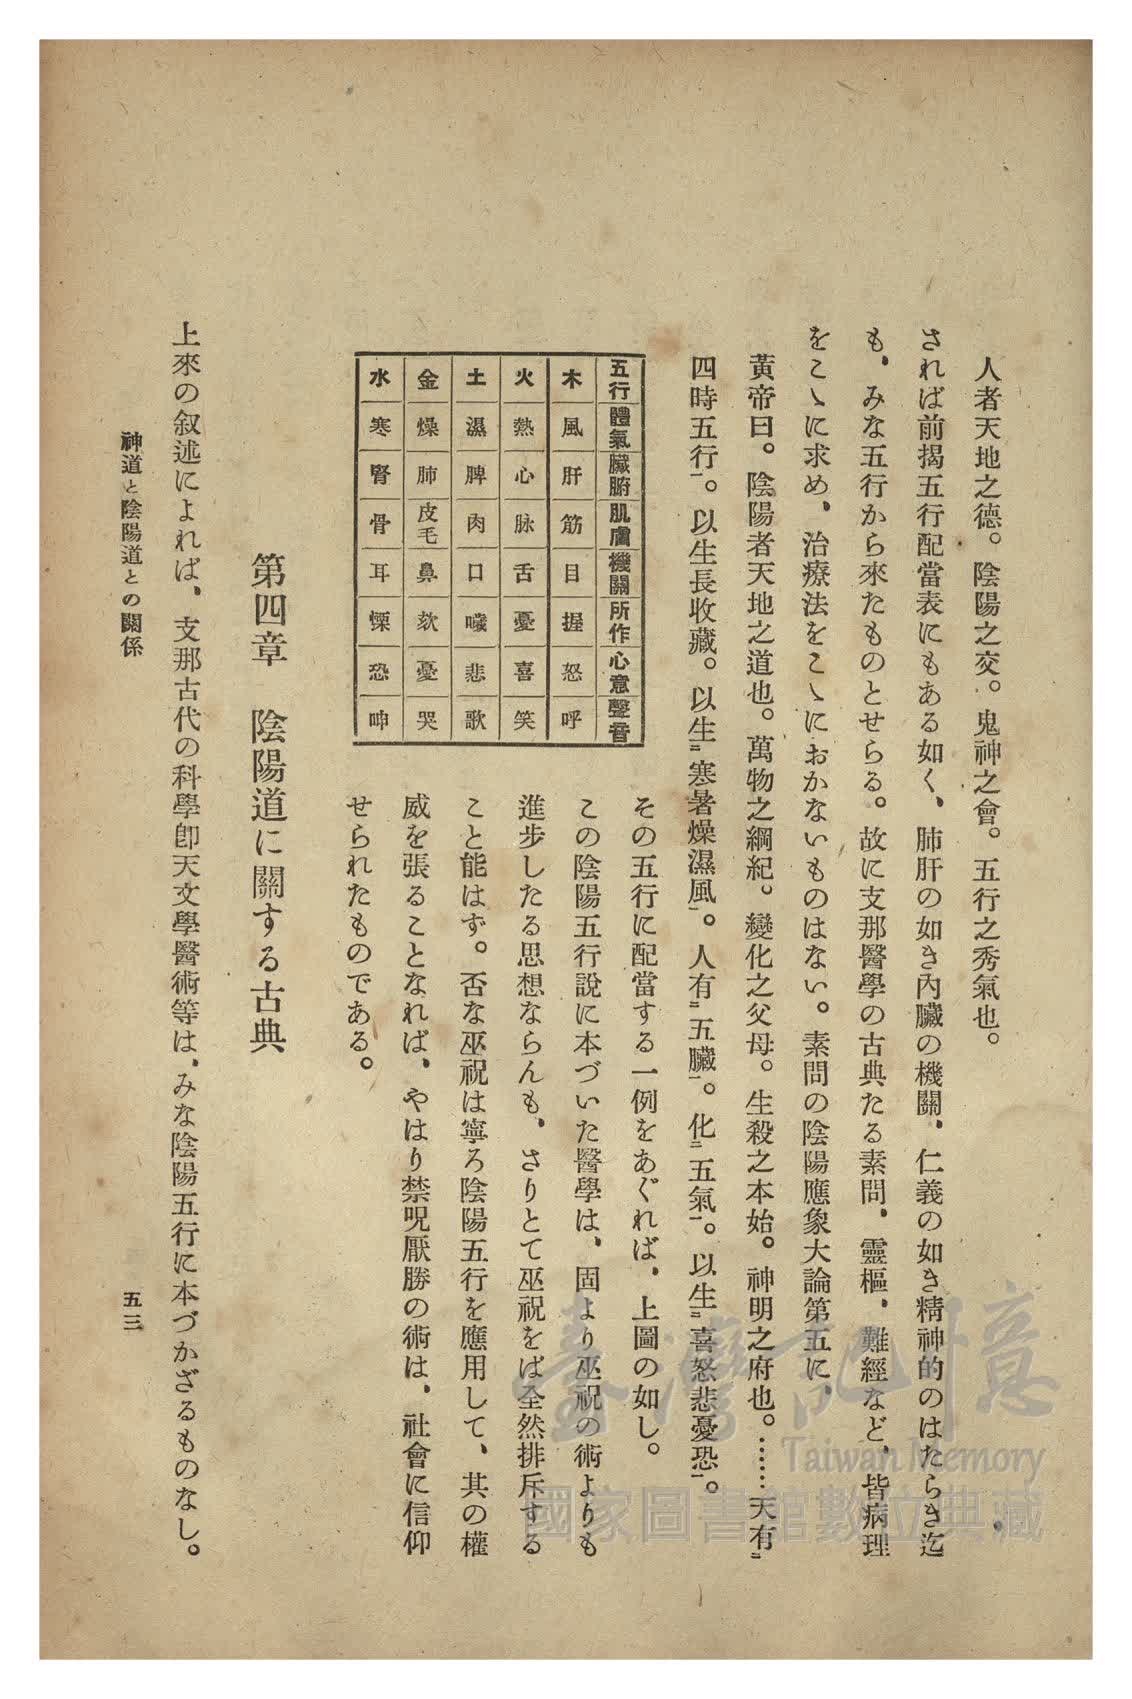 人者天地之德。陰陽之交。鬼神之會。五行之秀氣也。
されば前揭五行配當表にもある如く、肺肝の如き內臟の機關、仁義の如き精神的のはたらき迄
も、みな五行から來たものとせらる。故に支那醫學の古典たる素問、靈樞、難經など、皆病理
をこゝに求め、治療法をこゝにおかないものはない。素問の陰陽應象大論第五に、
黃帝曰。陰陽者天地之道也。萬物之綱紀。變化之父母。生殺之本始。神明之府也。……天有㆓
四時五行㆒。以生長收藏。以生㆓寒暑燥濕風㆒。人有㆓五臟㆒。化㆓五氣㆒。以生㆓喜怒悲憂恐㆒。
五行 體氣 臟腑 肌膚 機關 所作 心意 聲音
木 風 肝 筋 目 握 怒 呼
火 熱 心 脉 舌 憂 喜 笑
土 濕 脾 肉 口 噦 悲 歌
金 燥 肺 皮毛 鼻 欬 憂 哭
水 寒 腎 骨 耳 慄 恐 呻
その五行に配當する一例をあぐれば、上圖の如し。
この陰陽五行說に本づいた醫學は、固より巫祝の術よりも
進步したる思想ならんも、さりとて巫祝をば全然排斥する
こと能はず。否な巫祝は寧ろ陰陽五行を應用して、其の權
威を張ることなれば、やはり禁呪厭勝の術は、社會に信仰
せられたものである。
第四章 陰陽道に關する古典
上來の叙述によれば、支那古代の科學卽天文學醫術等は、みな陰陽五行に本づかざるものなし。
神道と陰陽道との關係
五三
臺灣記憶
Taiwan Memory
國家圖書館數位典藏